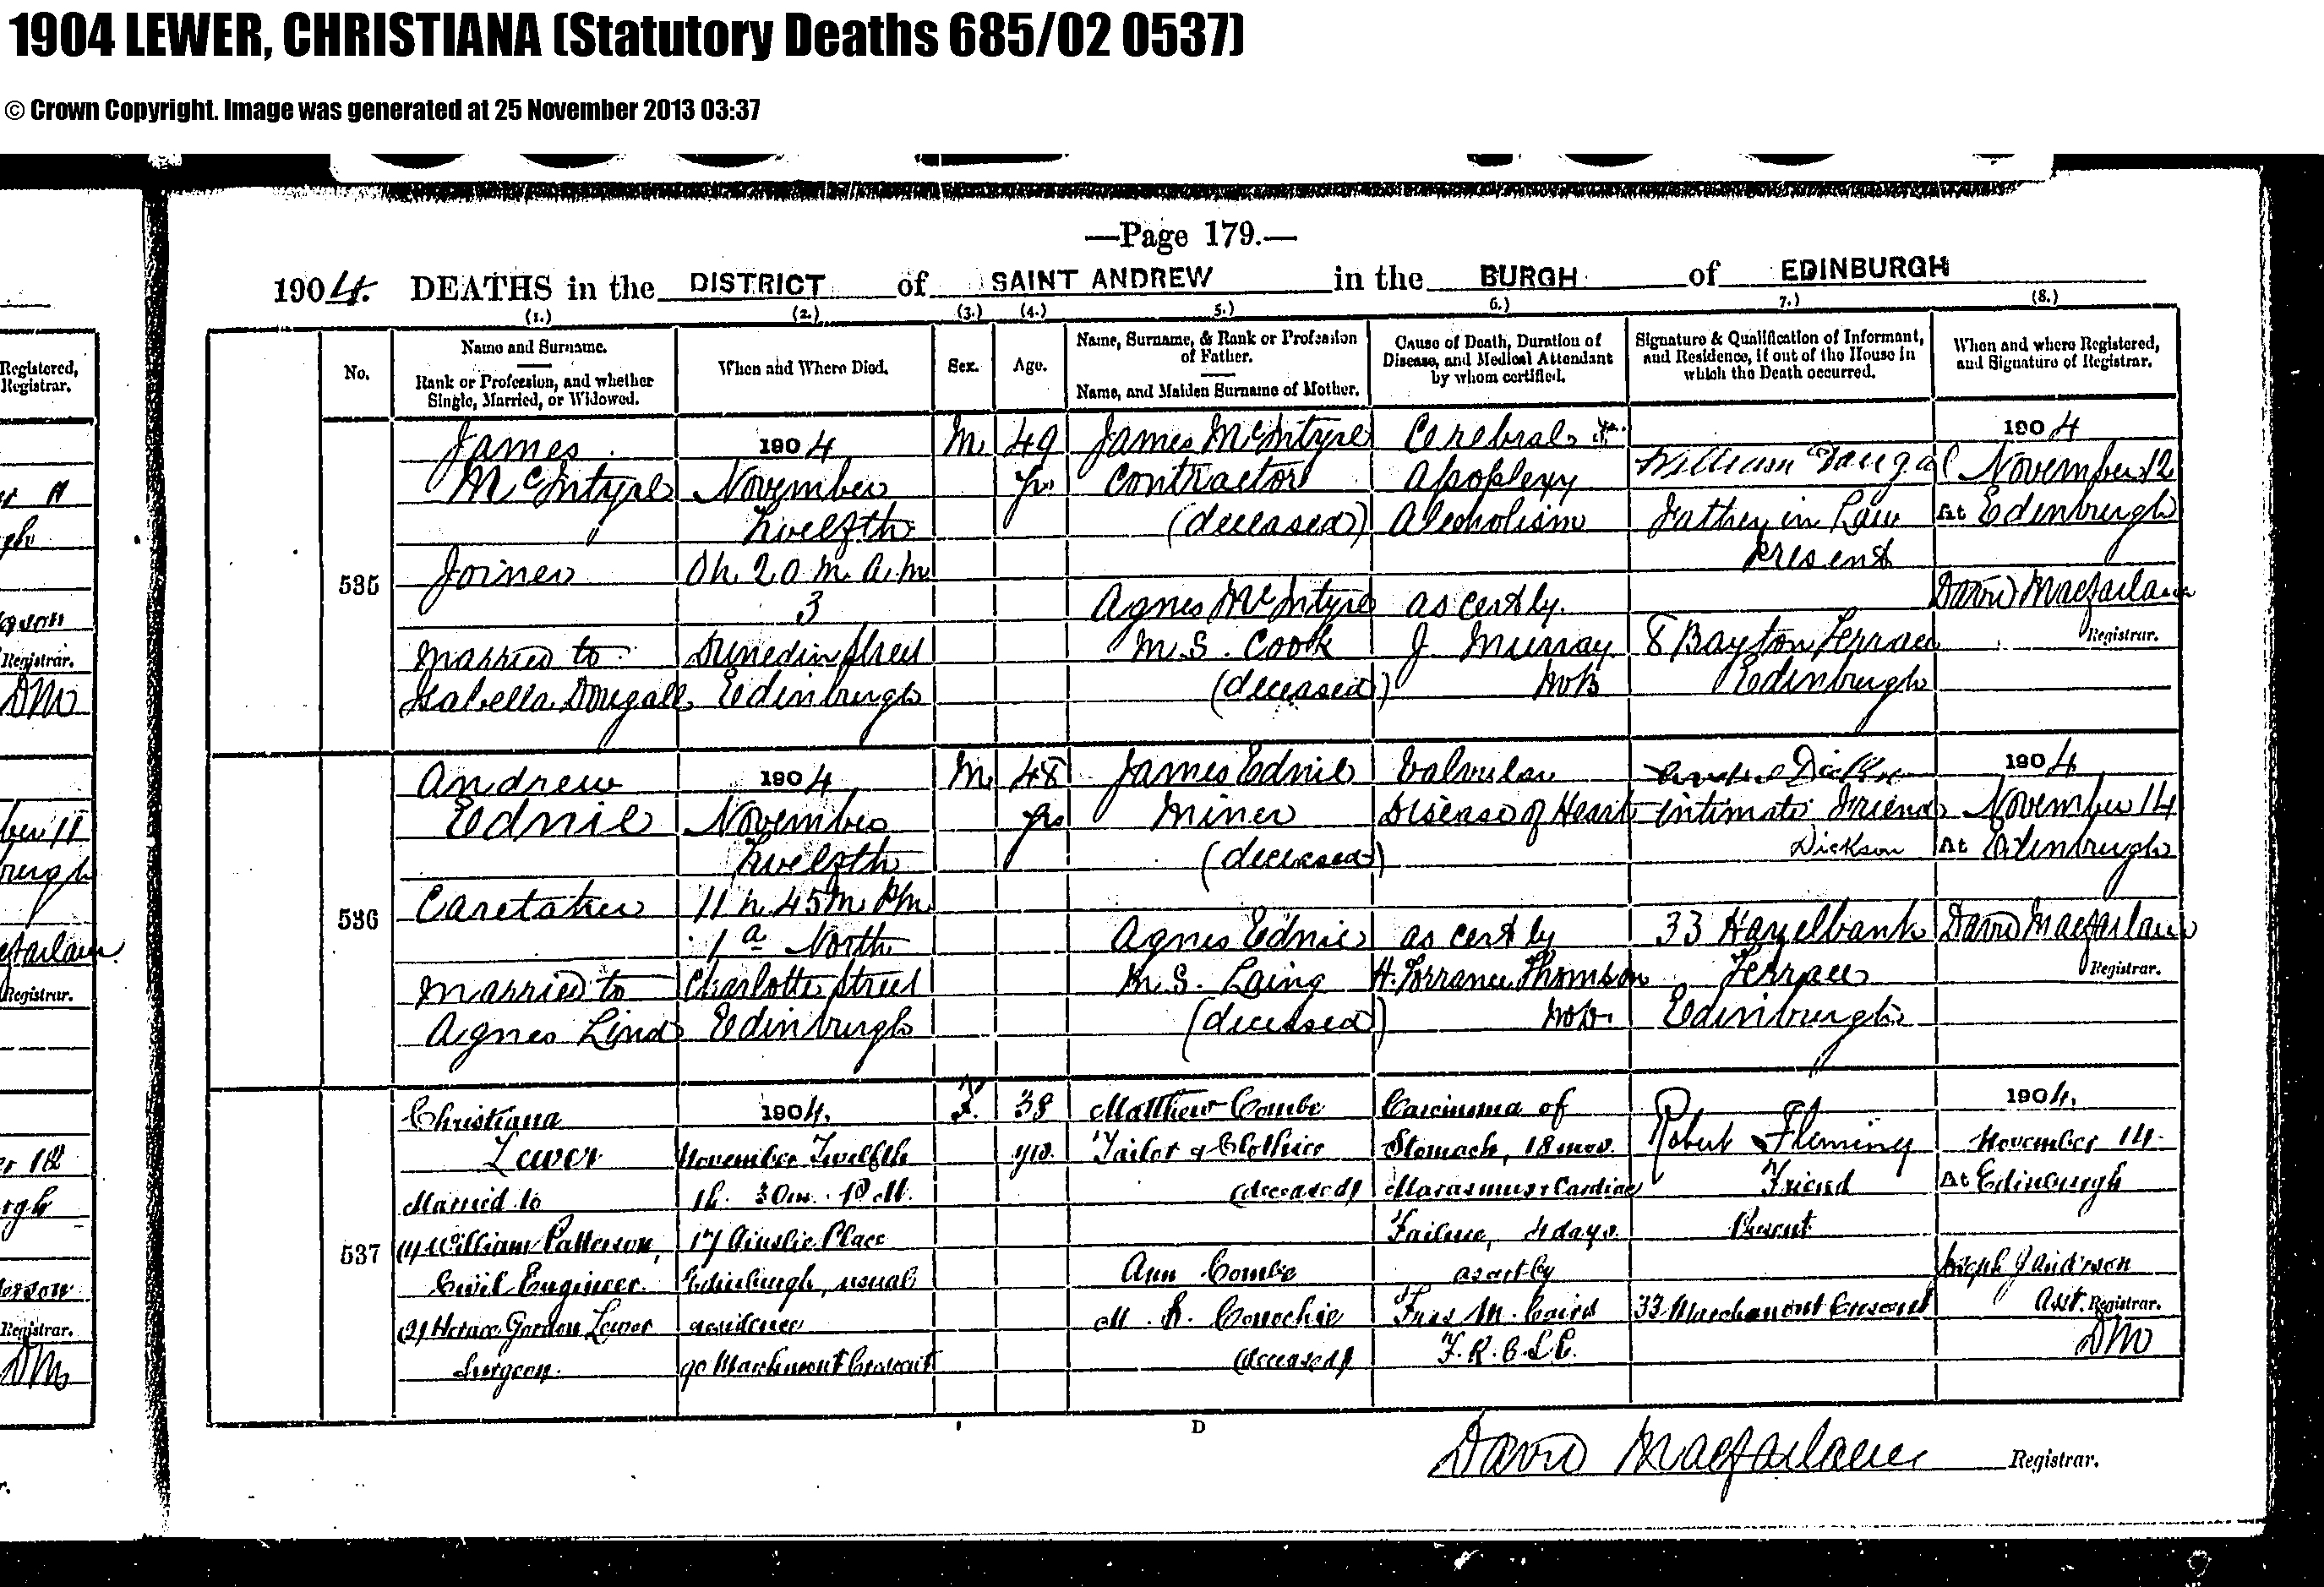 1904 LEWER, CHRISTIANA (Statutory Deaths 685/02 0537)
© Crown Copyright. Image was generated at 25 November 2013 03:37
—Page 179.—
1904. DEATHS in the DISTRICT of SAINT ANDREW in the BURGH of EDINBURGH
(1.) (2.) (3.) (4.) 5.) 6.) 7.) (8.)
No.
Name and Surname.
Rank or Profession, and whether
Single, Married, or Widowed.
When and Where Died.
Sex.
Age.
Name, Surname, & Rank or Profession
of Father.
Name, and Maiden Surname of Mother.
Cause of Death, Duration of
Disease, and Medical Attendant
by whom certified.
Signature & Qualification of Informant,
and Residence, if out of the House in
which the Death occurred.
When and where Registered,
and Signature of Registrar.
535
James
McIntyre
Joiner
Married to
Isabella Dougall
1904
November
Twelfth
0h. 20 m. a.m.
3
Dunedin Street
Edinburgh
M.
49
yrs
James McIntyre
Contractor
(deceased)
Agnes McIntyre
M.S. Cook
(deceased)
Cerebral
Apoplexy
Alcoholism
as cert by
J. Murray
M.B.
William Dougal
Father in Law
Present
8 Bayton Terrace
Edinburgh
1904
November 12
At Edinburgh
David Macfarlane
Registrar.
536
Andrew
Ednie
Caretaker
Married to
Agnes Lind
1904
November
Twelfth
11 h. 45 m. P.M.
1a North
Charlotte Street
Edinburgh
M.
48
yrs
James Ednie
Miner
(deceased)
Agnes Ednie
M.S. Laing
(deceased)
Valvular
Disease of Heart
as cert by
H. Torrance Thomson
M.B.
Intimate Friend
Dickson
33 Hazelbank
Terrace
Edinburgh
1904
November 14
At Edinburgh
David Macfarlane
Registrar.
537
Christiana
Lewer
Married to
(1) William Patterson,
Civil Engineer.
(2) Horace Gordon Lewer
Surgeon.
1904.
November Twelfth
1h. 30m. P.M.
17 Ainslie Place
Edinburgh, usual
residence
90 Marchmont Crescent
F.
38
yrs.
Matthew Combe
Tailor & Clothier
(deceased)
Ann Combe
M. S. Conochie
(deceased)
Carcinoma of
Stomach, 18 mos.
Marasmus & Cardiac
Failure, 4 days.
as cert by
Fras M. Caird
F.R.C.S.E.
Robert Fleming
Friend
Present
33 Marchmont Crescent
1904.
November 14.
At Edinburgh
Joseph J Anderson
Asst. Registrar.
DM
D
David Macfarlane Registrar.
Registered,
Registrar.
Registrar.
DM
Registrar.
Registrar.
DM